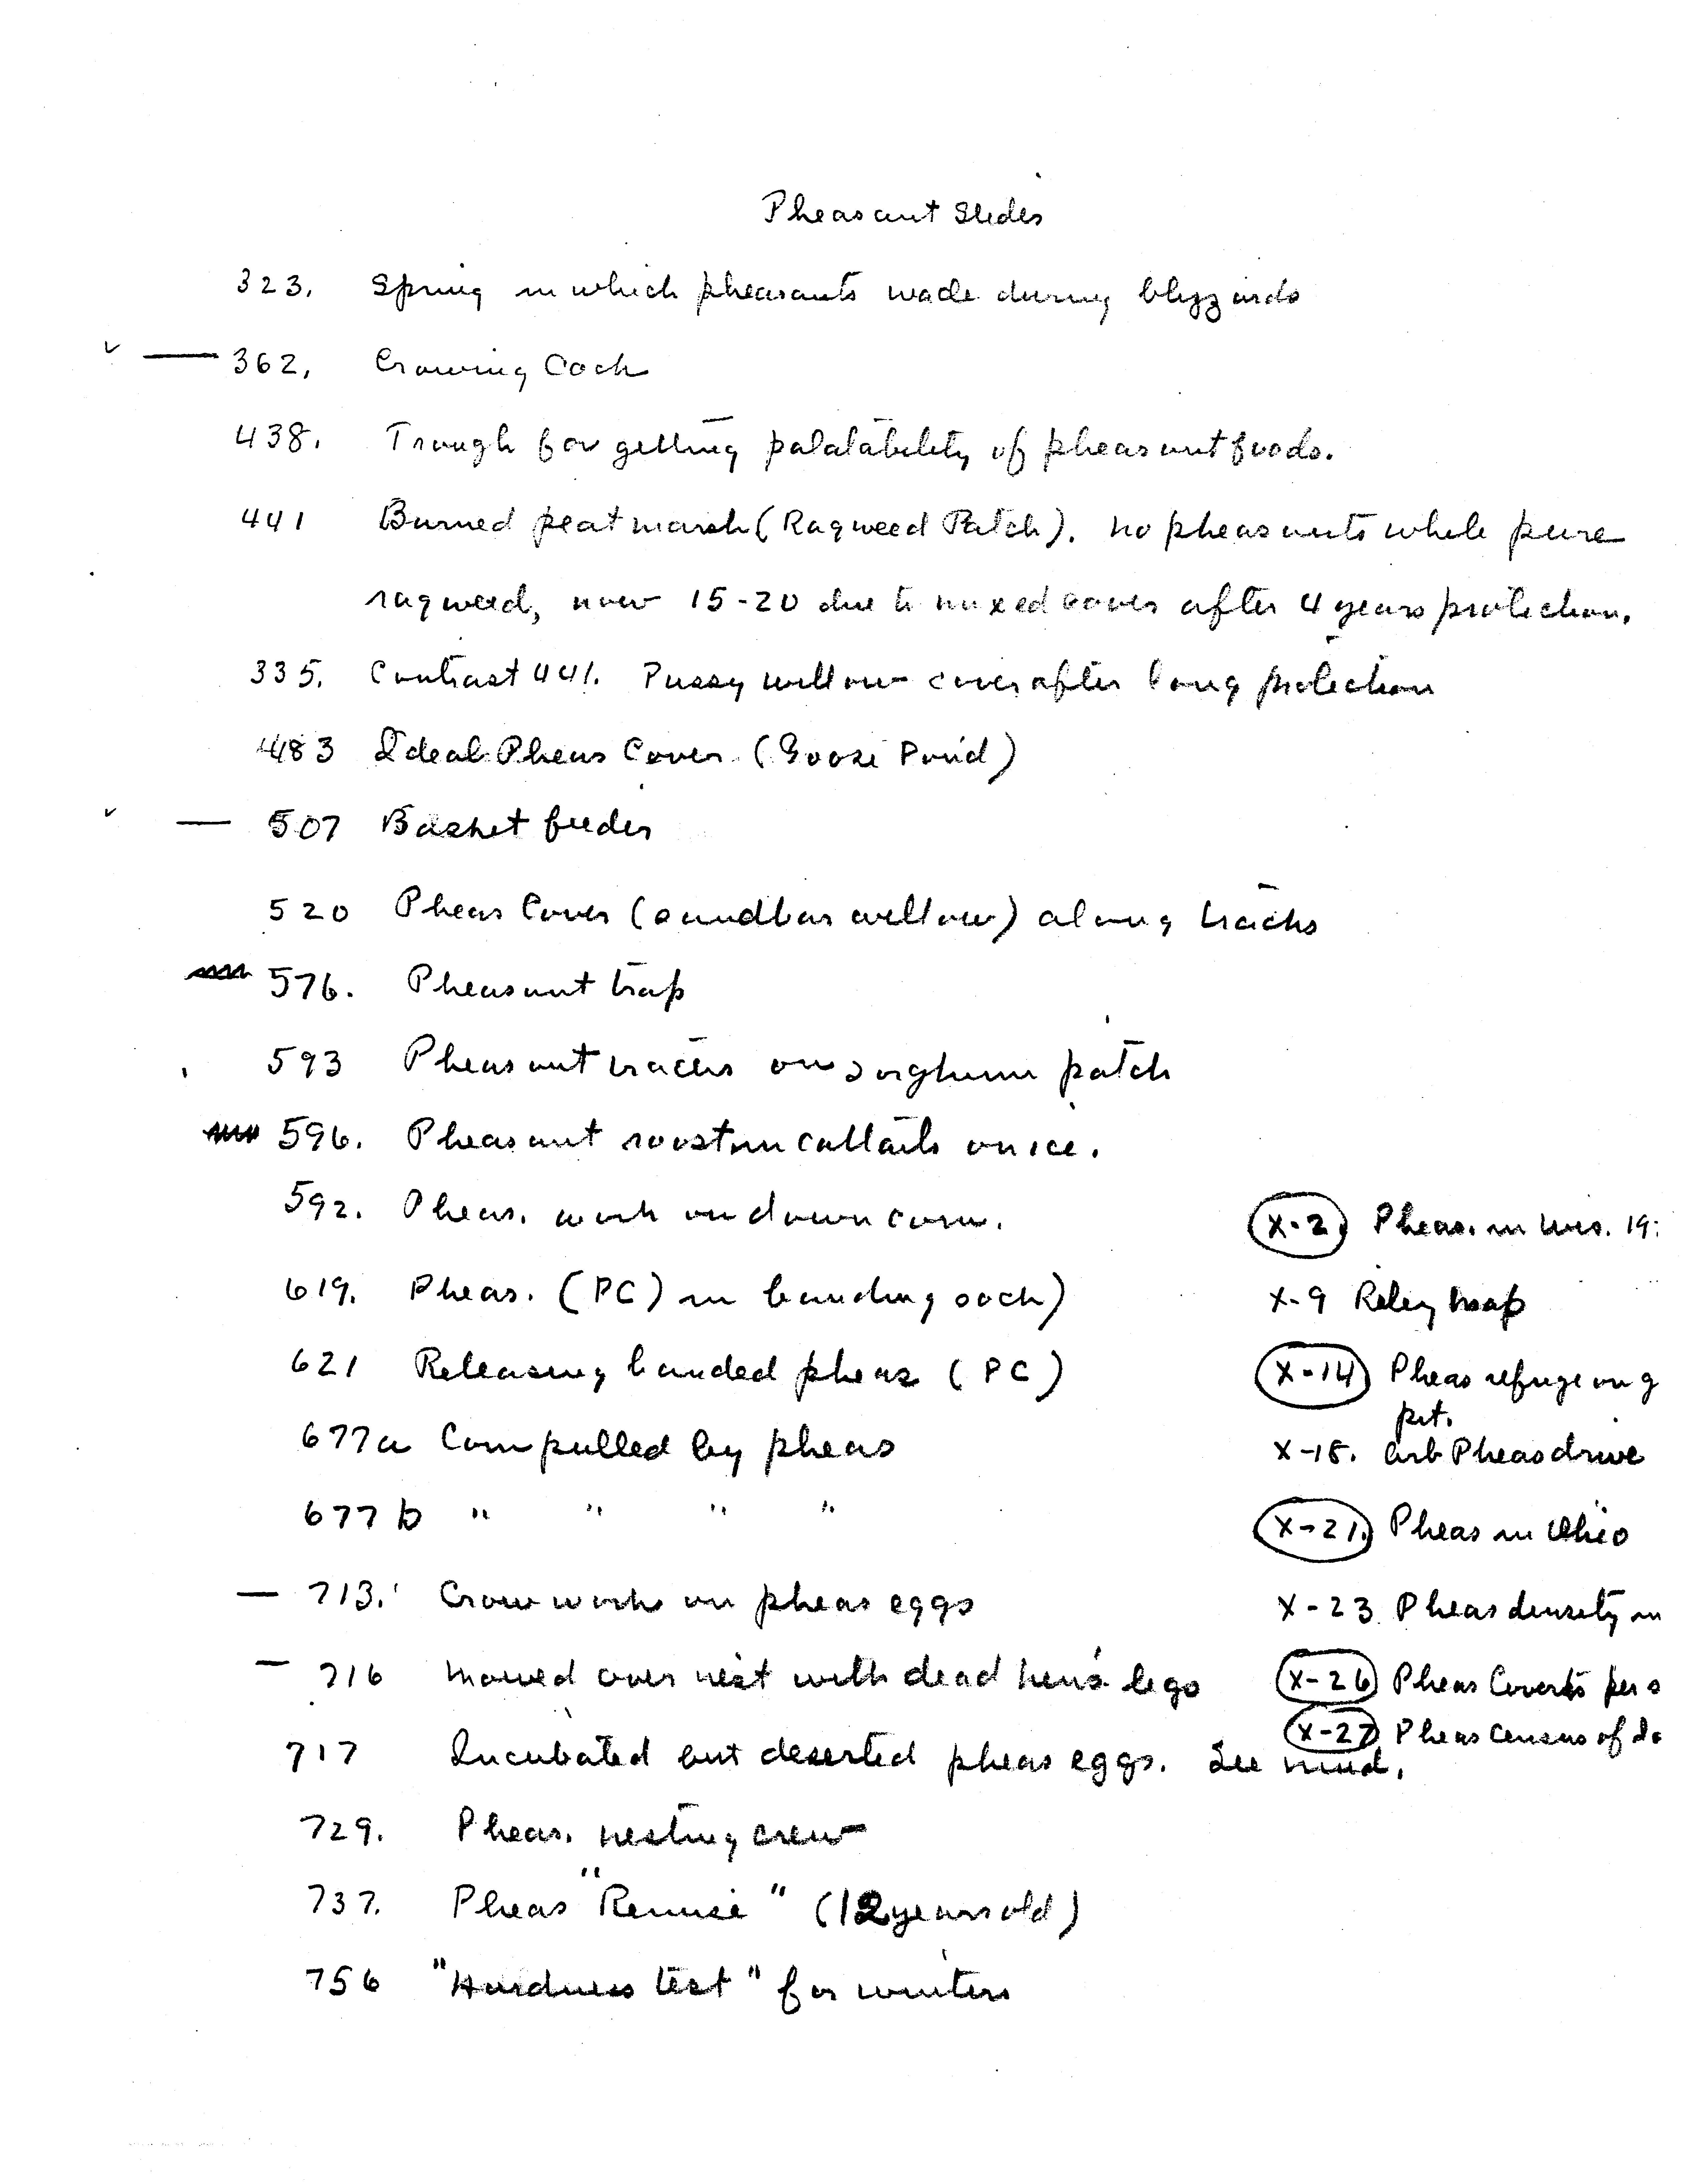 Pheasant Slides
323. Spring in which pheasants wade during blizzards
✓ — 362. Crowing Cock
438. Trough for getting palatability of pheasant foods.
441 Burned peat marsh (Ragweed Patch). No pheasants while pure
ragweed, now 15-20 due to mixed cover after 4 years protection.
335. Contrast 441. Pussy willow cover after long protection
483 Ideal Pheas Cover (Goose Pond)
✓ — 507 Basket feeder
520 Pheas Cover (sandbar willow) along tracks
576. Pheasant trap
593 Pheasant tracks on sorghum patch
596. Pheasant roost in cattails on ice.
592. Pheas. work on down corn.
X-2. Pheas. in Wis. 19
619. Pheas. (PC) in banding sock)
X-9 Riley map
621 Releasing banded pheas (PC)
X-14 Pheas refuge on g
pvt.
677a Corn pulled by pheas
X-18. Arb Pheas drive
677b " " " "
X-21. Pheas in Ohio
— 713. Crow work on pheas eggs
X-23. Pheas density in
— 716 Mowed over nest with dead hen's legs
X-26 Pheas Coverts per s
X-27 Pheas Census of
717 Incubated but deserted pheas eggs. See mud.
729. Pheas. nesting crew
737. Pheas "Remise" (12 years old)
756 "Hardness test" for winters